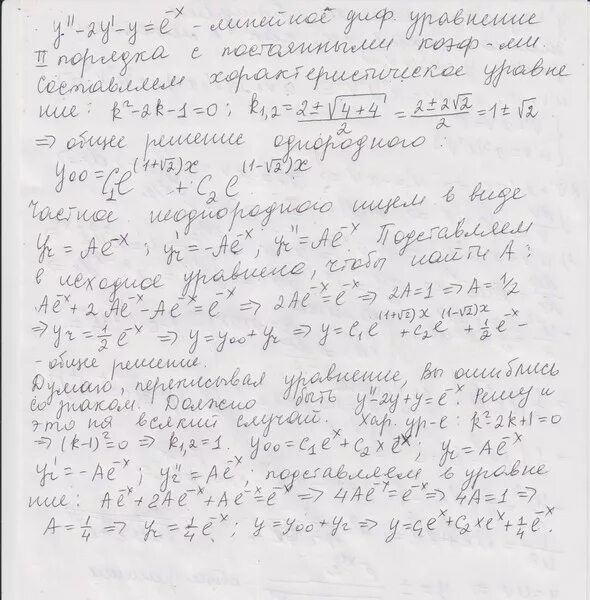 y'' - 2y' - y = e^-x - линейное диф. уравнение
II порядка с постоянными коэф-ми.
Составляем характеристическое уравне
ние: k² - 2k - 1 = 0; k1,2 = (2 ± √(4+4))/2 = (2 ± 2√2)/2 = 1 ± √2
=> общее решение однородного:
yоо = C1 e^(1+√2)x + C2 e^(1-√2)x
Частное неоднородного ищем в виде
yч = Ae^-x; yч' = -Ae^-x; yч'' = Ae^-x Подставляем
в исходное уравнение, чтобы найти A:
Ae^-x + 2Ae^-x - Ae^-x = e^-x => 2Ae^-x = e^-x => 2A = 1 => A = 1/2
=> yч = 1/2 e^-x => y = yоо + yч => y = C1 e^(1+√2)x + C2 e^(1-√2)x + 1/2 e^-x -
- общее решение.
Думаю, переписывая уравнение, Вы ошиблись
со знаком. Должно быть y'' - 2y + y = e^-x. Решу и
это на всякий случай. Хар. ур-е: k² - 2k + 1 = 0
=> (k-1)² = 0 => k1,2 = 1. yоо = C1 e^x + C2 x e^x; yч = Ae^-x
yч' = -Ae^-x; yч'' = Ae^-x; подставляем в уравне
ние: Ae^-x + 2Ae^-x + Ae^-x = e^-x => 4Ae^-x = e^-x => 4A = 1 =>
A = 1/4 => yч = 1/4 e^-x; y = yоо + yч => y = C1 e^x + C2 x e^x + 1/4 e^-x.